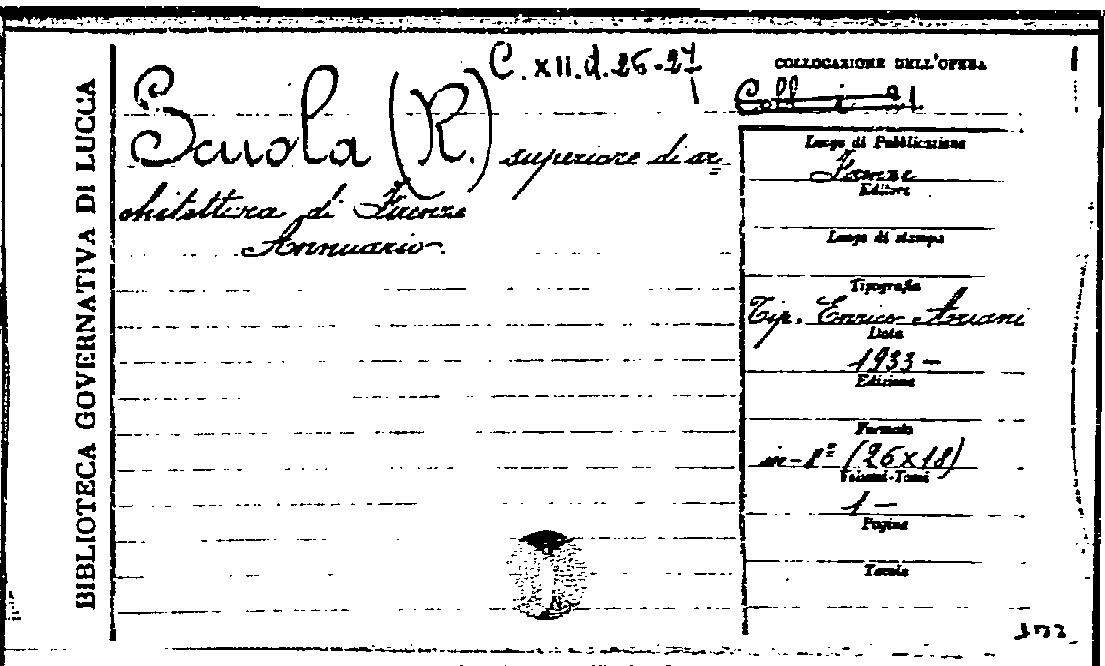 BIBLIOTECA GOVERNATIVA DI LUCCA
C. XII. d. 26-27
Scuola (R.) superiore di ar=
chitettura di Firenze
Annuario.
COLLOCAZIONE DELL'OPERA
Luogo di Pubblicazione
Firenze
Editore
Luogo di stampa
Tipografia
Tip. Enrico Ariani
Data
1933 -
Edizione
Formato
in-8º (26x18)
Volumi-Tomi
1 -
Pagine
Tavole